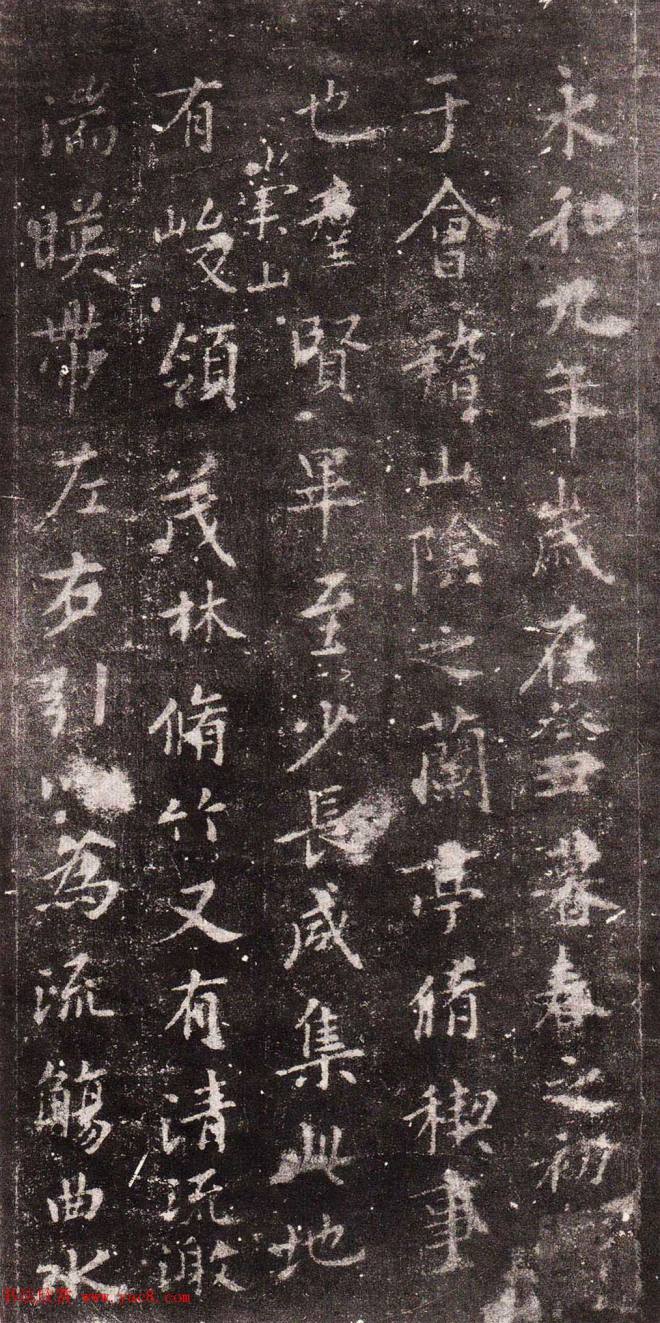 永和九年歲在癸丑暮春之初
于會稽山陰之蘭亭脩稧事
也羣賢畢至少長咸集此地
崇山
有峻領茂林脩竹又有清流激
湍暎帶左右引以為流觴曲水
书法欣赏 www.yac8.com